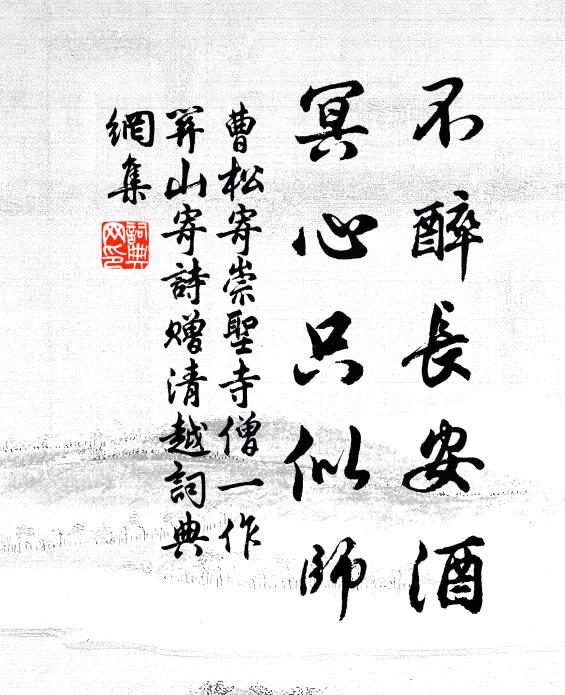 不醉長安酒
冥心只似師
曹松寄崇聖寺僧一作
羿山寄詩贈清越詞典
網集
詞典
网印